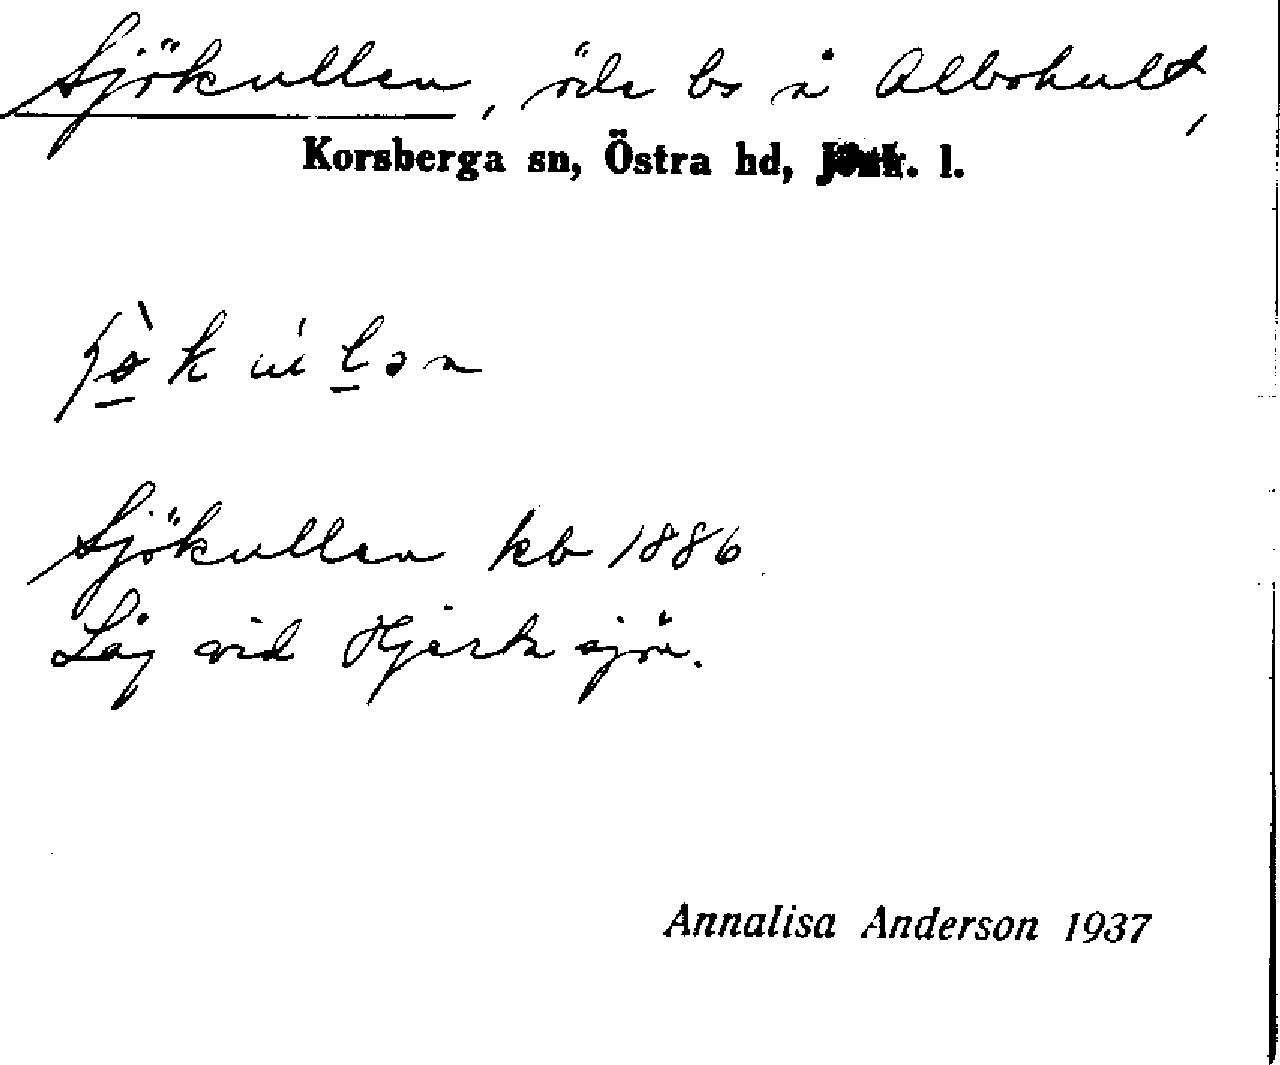 Sjökullen, öde bs å Albohult,
Korsberga sn, Östra hd, Jönk. l.
Sjökullen kb 1886
Låg vid Hjärtsjön.
Annalisa Anderson 1937